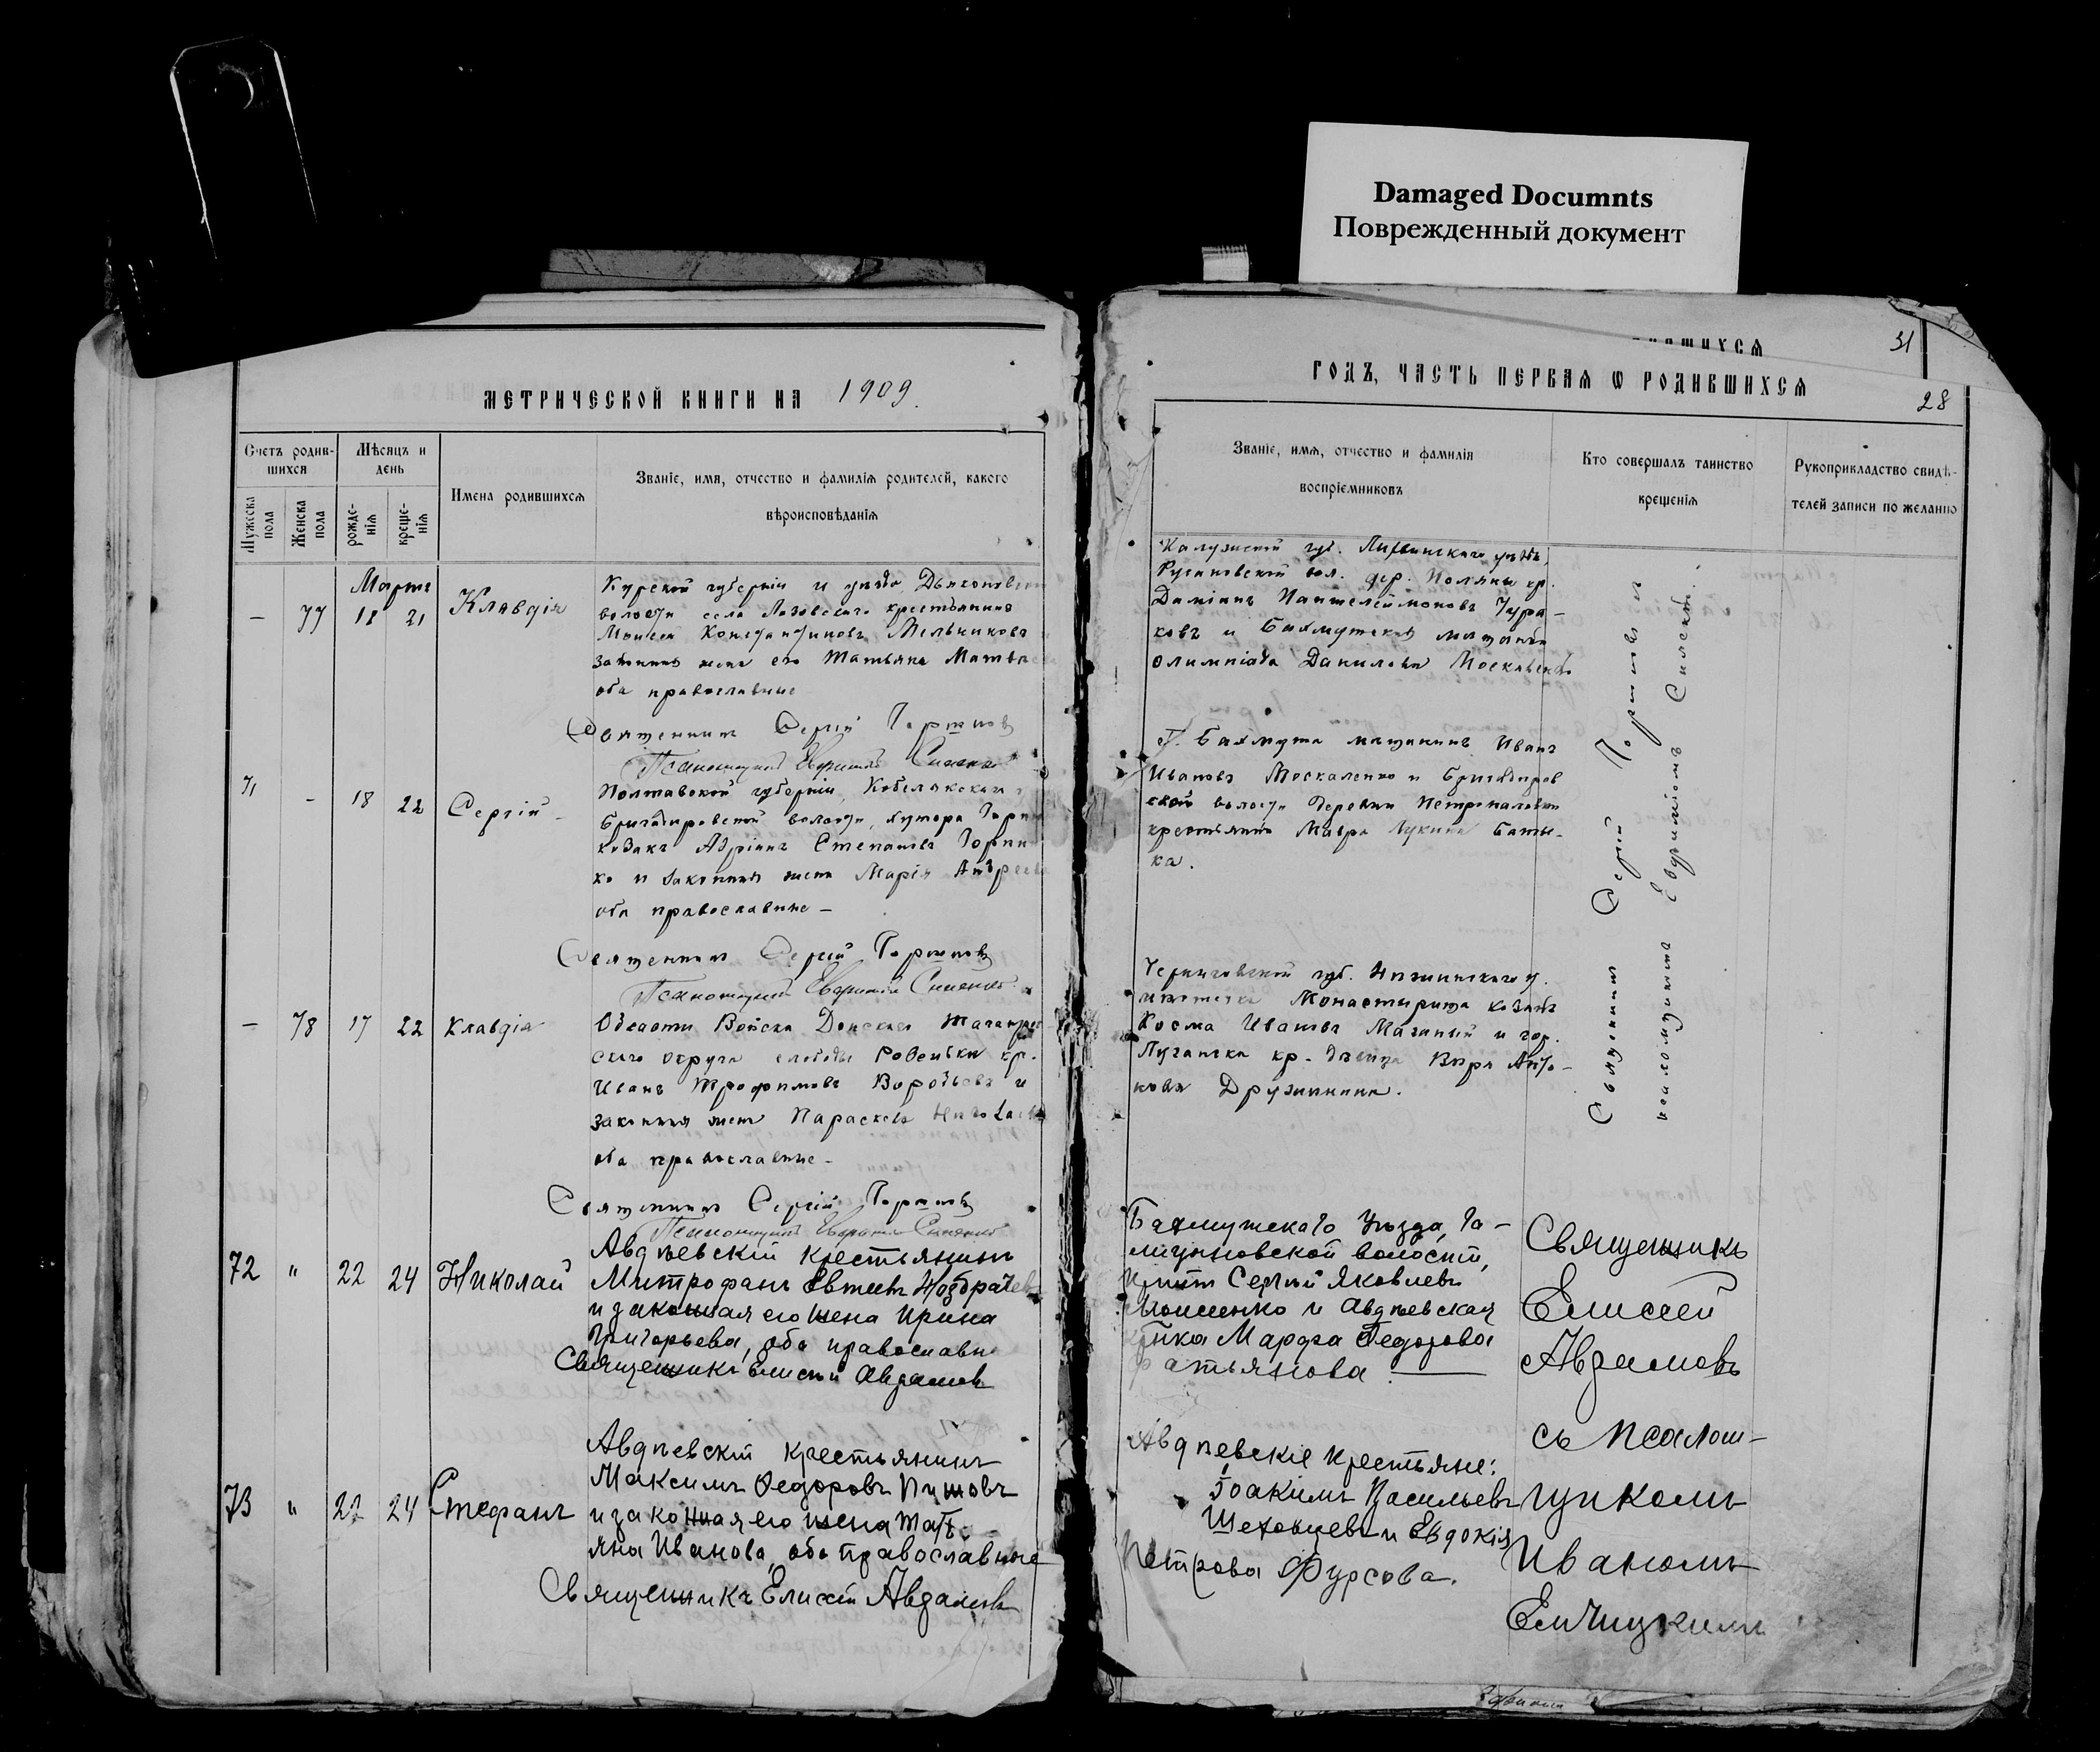 Damaged Documnts
Поврежденный документ
31
МЕТРИЧЕСКОЙ КНИГИ НА 1909.
Счетъ родив-
шихся
Мужеска пола
Женска пола
Мѣсяцъ и
день
рожде-
нія
креще-
нія
Имена родившихся
Званіе, имя, отчество и фамилія родителей, какого
вѣроисповѣданія
Марта
– 77 18 21 Клавдія
Курской губерніи и уѣзда Дьяконовской
волости села Лозовскаго крестьянинъ
Моисей Константиновъ Мельниковъ
законная жена его Татьяна Матвѣе
оба православные
Священникъ Сергій
Псаломщикъ Евфимій
71 – 18 22 Сергій
Полтавской губерніи, Кобелякскаго
Бригадировской волости, хутора
козакъ Адріанъ Степановъ
ко и законная жена Марія Андреева
оба православные –
Священникъ Сергій
Псаломщикъ Евфимій
– 78 17 22 Клавдія
Области Войска Донскаго Таганрог
скаго округа слободы Ровеньки кр.
Иванъ Трофимовъ Воробьевъ и
законная жена Параскева Николаева
оба православные –
Священникъ Сергій
Псаломщикъ Евфимій
72 " 22 24 Николай
Авдѣевскій крестьянинъ
Митрофанъ Евтеевъ Ноздрачев
и законная его жена Ирина
Григорьева, оба православн
Священникъ Елисей Авраамовъ
73 " 22 24 Стефанъ
Авдѣевскій крестьянинъ
Максимъ Федоровъ
и законная его жена Татъ-
яна Иванова, оба православные
Священникъ Елисей Авраамовъ
ГОДЪ, ЧАСТЬ ПЕРВАЯ Ѡ РОДИВШИХСЯ
28
Званіе, имя, отчество и фамилія
воспріемниковъ
Кто совершалъ таинство
крещенія
Рукоприкладство свидѣ-
телей записи по желанію
Калужской губ. Лихвинскаго уѣзда,
вол. дер. Поляны кр.
Даміанъ Пантелеймоновъ Чура-
ковъ и Бахмутская мѣщанка
Олимпіада Данилова
г. Бахмута мѣщанинъ Иванъ
Ивановъ Москаленко и Бригадиров
ской волости деревни Петропавловки
крестьянка Мавра Лукина Баты-
ка.
Черниговской губ. Нѣжинскаго у.
мѣстечка Монастырища козакъ
Косма Ивановъ и гор.
Луганска кр. дѣвица Вѣра Анто-
нова Дружинина.
Священникъ Сергій
псаломщикъ Евфиміемъ
Бахмутскаго уѣзда, Га-
лицыновской волости,
Сергій Яковлевъ
и Авдѣевская
Марфа Федорова
Священникъ
Елисей
Авраамовъ
съ псалом-
щикомъ
Иваномъ
Авдѣевскіе крестьяне:
Іоакимъ Васильевъ
Шеховцевъ и Евдокія
Петрова Фурсова.